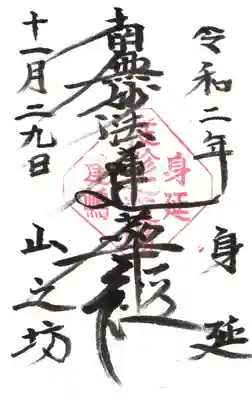 令和二年
身延
南無妙法蓮華経
山之坊
十一月二九日
身延